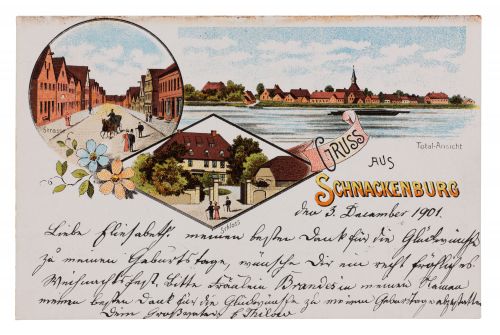 Strasse
Total-Ansicht
Schloss
GRUSS
AUS
SCHNACKENBURG
den 3. December 1901.
Liebe Elisabeth! meinen besten Dank für die Glückwünsche
zu meinem Geburtstage, wünsche Dir ein recht fröhliches
Weihnachtsfest, bitte Fräulein Brandes in meinem Namen
meinen besten Dank für die Glückwünsche zu meinem Geburtstage abzustatten
Dein Großvater E Thilow